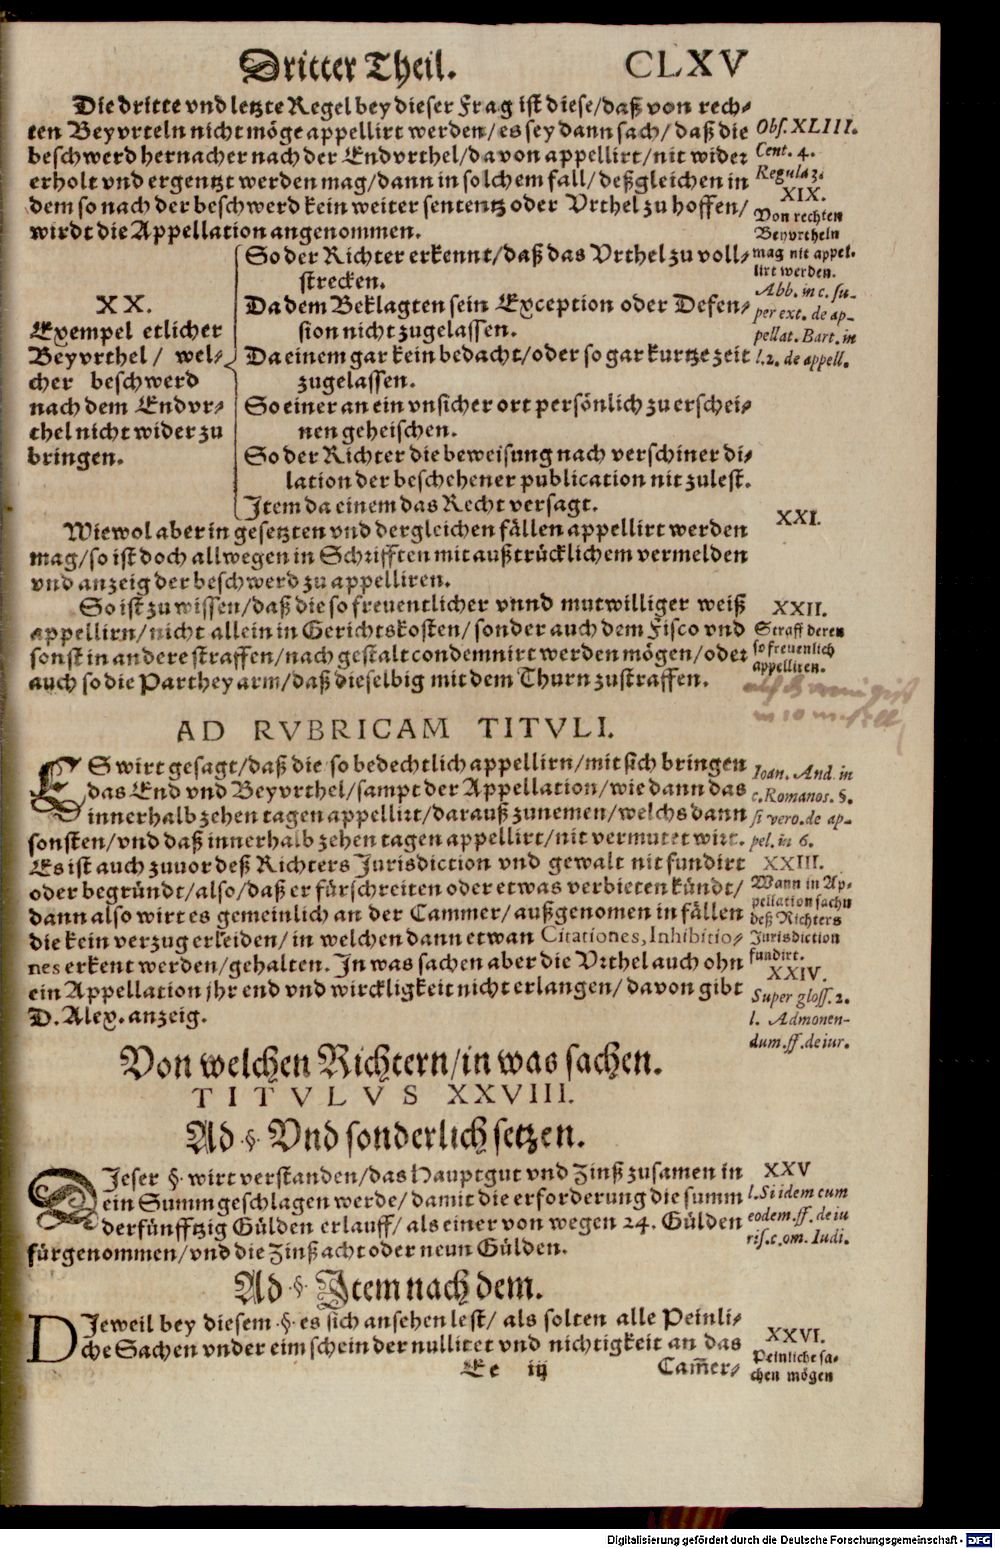 Dritter Theil. CLXV
Die dritte vnd letzte Regel bey dieser Frag ist diese/daß von rech⸗
ten Beyvrteln nicht möge appellirt werden/es sey dann sach/daß die
beschwerd hernacher nach der Endvrthel/davon appellirt/nit wider
erholt vnd ergentzt werden mag/dann in solchem fall/deßgleichen in
dem so nach der beschwerd kein weiter sententz oder Vrthel zu hoffen/
wirdt die Appellation angenommen.
Obs. XLIII.
Cent. 4.
Regula 3.
XIX.
Von rechten
Beyvrtheln
mag nit appel⸗
lirt werden.
Abb. in c. su-
per ext. de ap-
pellat. Bart. in
l. 2. de appell.
XX.
Exempel etlicher
Beyvrthel/ wel⸗
cher beschwerd
nach dem Endvr⸗
thel nicht wider zu
bringen.
So der Richter erkennt/daß das Vrthel zu voll⸗
strecken.
Da dem Beklagten sein Exception oder Defen⸗
sion nicht zugelassen.
Da einem gar kein bedacht/oder so gar kurtze zeit
zugelassen.
So einer an ein vnsicher ort persönlich zu erschei⸗
nen geheischen.
So der Richter die beweisung nach verschiner di⸗
lation der beschehener publication nit zulest.
Item da einem das Recht versagt.
Wiewol aber in gesetzten vnd dergleichen fällen appellirt werden
mag/so ist doch allwegen in Schrifften mit außtrücklichem vermelden
vnd anzeig der beschwerd zu appelliren.
XXI.
So ist zu wissen/daß die so freuentlicher vnnd mutwilliger weiß
appellirn/nicht allein in Gerichtskosten/sonder auch dem Fisco vnd
sonst in andere straffen/nach gestalt condemnirt werden mögen/oder
auch so die Parthey arm/daß dieselbig mit dem Thurn zustraffen.
XXII.
Straff deren
so freuenlich
appelliren.
AD RVBRICAM TITVLI.
ES wirt gesagt/daß die so bedechtlich appellirn/mit sich bringen
das End vnd Beyvrthel/sampt der Appellation/wie dann das
innerhalb zehen tagen appellirt/darauß zunemen/welchs dann
sonsten/vnd daß innerhalb zehen tagen appellirt/nit vermutet wirt.
Es ist auch zuuor deß Richters Jurisdiction vnd gewalt nit fundirt
oder begründt/also/daß er fürschreiten oder etwas verbieten kündt/
dann also wirt es gemeinlich an der Cammer/außgenomen in fällen
die kein verzug erleiden/in welchen dann etwan Citationes, Inhibitio⸗
nes erkent werden/gehalten. In was sachen aber die Vrthel auch ohn
ein Appellation jhr end vnd wirckligkeit nicht erlangen/davon gibt
D. Alex. anzeig.
Ioan. And. in
c. Romanos. §.
si vero. de ap-
pel. in 6.
XXIII.
Wann in Ap⸗
pellation sachn
deß Richters
Jurisdiction
fundirt.
XXIV.
Super gloss. 2.
l. Admonen-
dum. ff. de iur.
Von welchen Richtern/in was sachen.
TITVLVS XXVIII.
Ad §. Vnd sonderlich setzen.
DJeser §. wirt verstanden/das Hauptgut vnd Zinß zusamen in
ein Summ geschlagen werde/damit die erforderung die summ
der fünfftzig Gülden erlauff/als einer von wegen 24. Gülden
fürgenommen/vnd die Zinß acht oder neun Gülden.
XXV
l. Si idem cum
eodem. ff. de iu
ris. c. om. Iudi.
Ad §. Item nach dem.
DJeweil bey diesem §. es sich ansehen lest/ als solten alle Peinli⸗
che Sachen vnder eim schein der nullitet vnd nichtigkeit an das
XXVI.
Peinliche sa⸗
chen mögen
Ee iij Cam̃er⸗
Digitalisierung gefördert durch die Deutsche Forschungsgemeinschaft - DFG